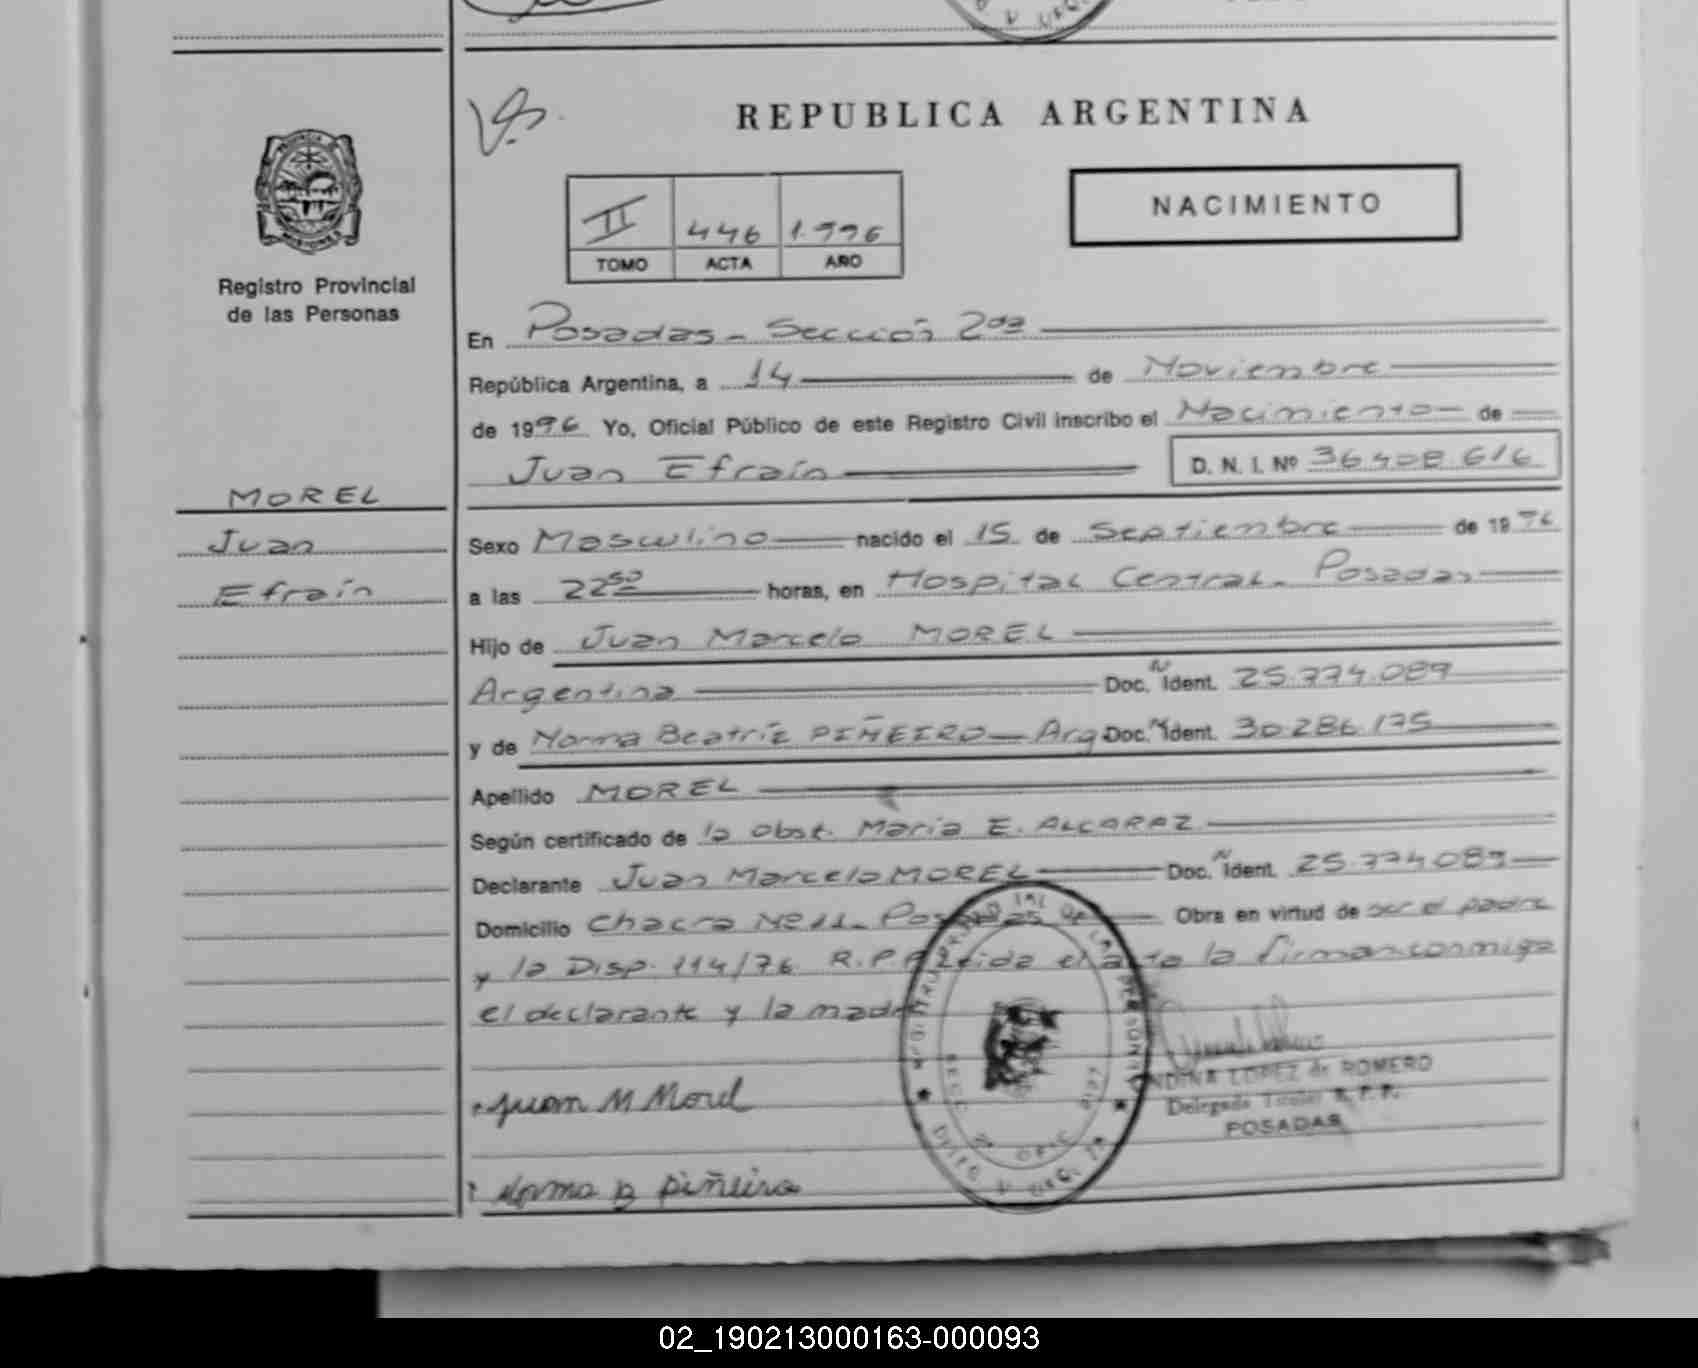 REPUBLICA ARGENTINA
II 446 1.996
TOMO ACTA AÑO
NACIMIENTO
PROVINCIA DE
MISIONES
Registro Provincial
de las Personas
MOREL
Juan
Efraín
En Posadas - Sección 2da
República Argentina, a 14 de Noviembre
de 1996 Yo, Oficial Público de este Registro Civil inscribo el Nacimiento de
Juan Efraín D. N. I. Nº 36.408.616
Sexo Masculino nacido el 15 de Septiembre de 1996
a las 22 50 horas, en Hospital Central - Posadas
Hijo de Juan Marcelo MOREL
Argentina Doc. N Ident. 25.774.089
y de Norma Beatríz PIÑEIRO - Arg Doc. N Ident. 30.286.175
Apellido MOREL
Según certificado de la Obst. María E. ALCARAZ
Declarante Juan Marcelo MOREL Doc. N Ident. 25.774.089
Domicilio Chacra Nº 11 - Posadas Obra en virtud de ser el padre
y la Disp. 114/76 R.P.P. Leída el acta la firman conmigo
el declarante y la madre
Juan M Morel
LOPEZ de ROMERO
Delegada Titular R. P. P.
POSADAS
Norma B piñeiro
02_190213000163-000093